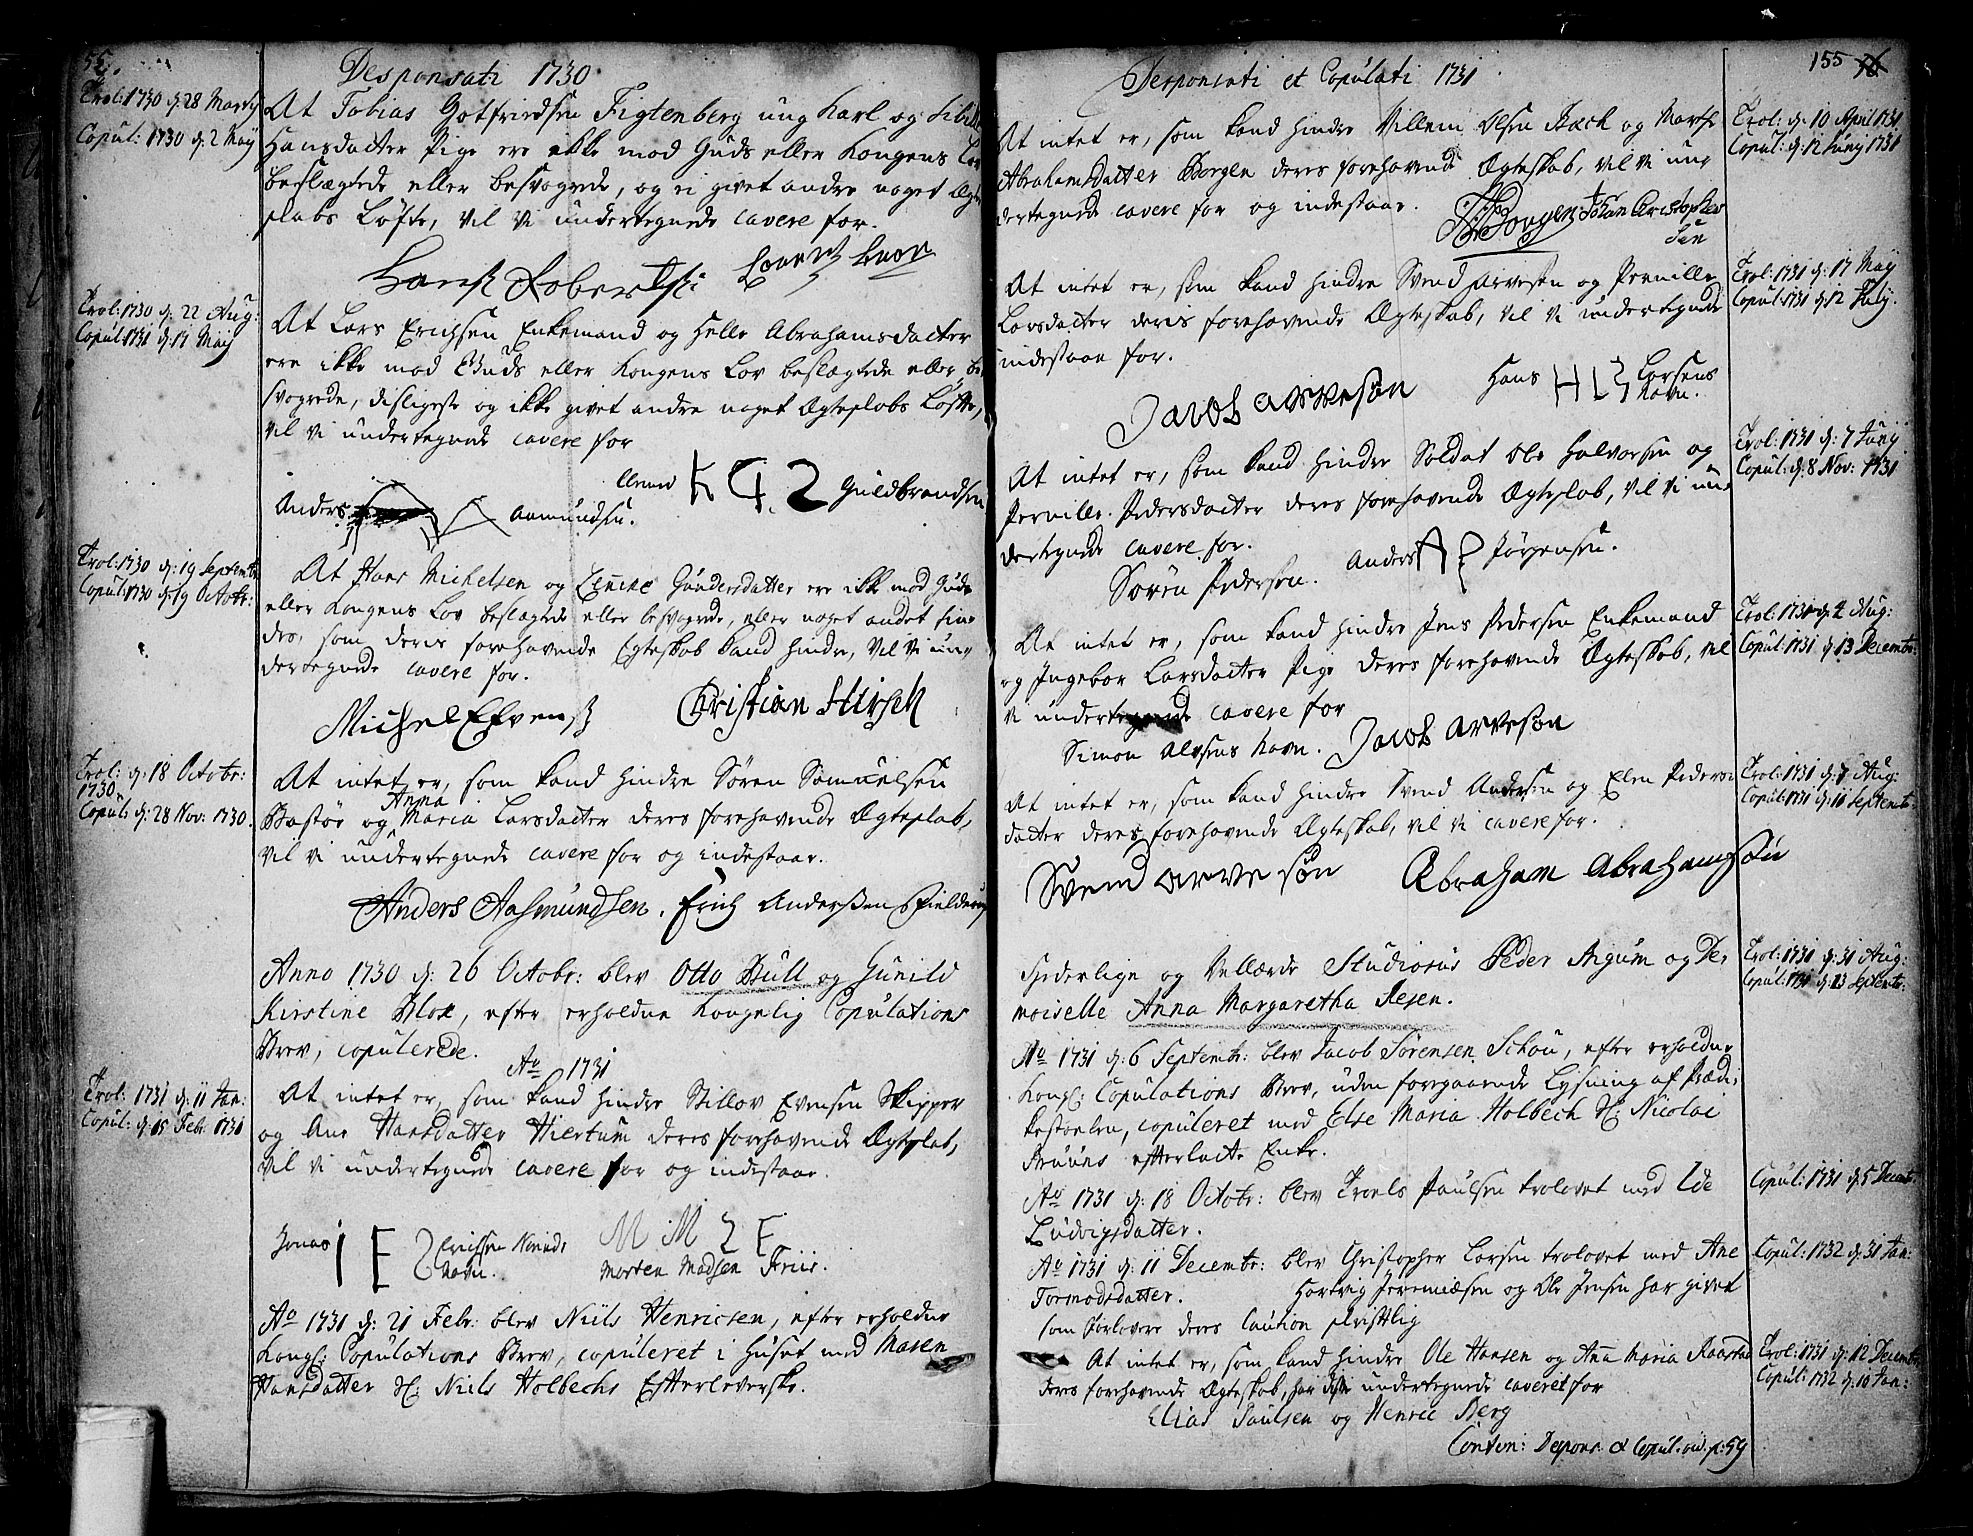 55.
Desponsati 1730
Trol: 1730 d. 28 Martij
Copul: 1730 d. 2 Maij
At Tobias Gotfriedsen Figtenberg ung Karl og
Hansdatter Pige ere ikke mod Guds eller Kongens Lov
beslægtede eller besvogrede, og ei givet andre noget Ægte
skabs Løfte, vil vi undertegnede cavere for.
Trol: 1730 d. 22 Aug:
Copul: 1731 d. 17 Maij
At Lars Erichsen Enkemand og Helle Abrahamsdatter
ere ikke mod Guds eller Kongens Lov beslægtede eller be
svogrede, disligeste og ikke givet andre noget Ægteskabs Løfte,
vil vi undertegnede cavere for
K G S Guldbrandsen
Anders Aamundsen.
Trol: 1730 d. 19 Septembr
Copul: 1730 d. 19 Octobr:
At Hans Michelsen og Lenike Gundersdatter ere ikke mod Guds
eller Kongens Lov beslægtede eller besvogrede, eller noget andet fin-
des, som deres forehavende Egteskab kand hindre, vil vi un-
dertegnede cavere for.
Michel Efvensz Christian Hirsch
Trol: d. 18 Octobr:
1730.
Copul: d. 28 Nov: 1730.
At intet er, som kand hindre Sören Samuelsen
Anna
Bastøe og Maria Larsdatter deres forehavende Ægteskab,
vil vi undertegnede cavere for og indestaae.
Anders Aasmundsen. Erich Anderssen
Anno 1730 d. 26 Octobr: blev Otto Bull og Gunild
Kirstine Blox, efter erholdne Kongelig Copulations
Brev, copulerede.
Ao 1731
Trol: 1731 d. 11 Jan:
Copul: d. 15 Febr. 1731
At intet er, som kand hindre Stillov Evensen Skipper
og Ane Hansdatter Hiertum deres forehavende Ægteskab,
vil vi undertegnede cavere for og indestaae.
Jonas I E S Erichsen
Navn.
M M S F
Morten Madsen Friis.
Ao 1731 d. 21 Febr: blev Niils Henricsen, efter erholdne
Kongl: Copulations Brev, copuleret i Huset med Maren
Hansdatter Sl: Niels Holbechs Efterleverske.
155
Desponsati et Copulati 1731
Trol: d. 10 April 1731
Copul: d. 12 Junij 1731
At intet er, som kand hindre Villem Olsen Bæck og Marthe
Abrahamsdatter Borgen deres forehavende Ægteskab, vil vi un-
dertegnede cavere for og indestaae.
Borgen Johan Christophersen
Trol: 1731 d. 17 Maij
Copul: 1731 d. 12 Julij.
At intet er, som kand hindre Svend Arvesen og Pernille
Larsdatter deres forehavende Ægteskab, vil vi undertegnede
indestaae for.
Jacob Arvesøn Hans H L S Larsens
Navn.
Trol: 1731 d. 7 Junij
Copul: d. 8 Nov: 1731
At intet er, som kand hindre Soldat Ole Halvorsen og
Pernille Pedersdatter deres forehavende Ægteskab, vil vi un-
dertegnede cavere for.
Sören Pedersen. Anders Jörgensen.
Trol: 1731 d. 2 Aug:
Copul: 1731 d. 13 Decembr:
At intet er, som kand hindre Jens Pedersen Enkemand
og Ingebor Larsdatter Pige deres forehavende Ægteskab, vil
vi undertegnede cavere for
Simon Alvsens Navn. Jacob Arvesøn
Trol: 1731 d. 7 Aug:
Copul: 1731 d. 11 Septembr.
At intet er, som kand hindre Svend Andersen og Elen Peders-
datter deres forehavende Ægteskab, vil vi cavere for.
Svend Arvesøn Abraham Abrahamsøn
Trol: 1731 d. 31 Aug:
Copul: 1731 d. 13 Septembr:
Hæderlige og Vellærde Studiosus Peder Angum og De-
moiselle Anna Margaretha Resen.
Ao 1731 d. 6 Septembr: blev Jacob Sörensen Schou, efter erholdne
Kongl: Copulations Brev, uden foregaaende Lysning af Prædi-
kestoelen, copuleret med Else Maria Holbech Sl: Nicolai
Struuns efterladte Enke.
Copul: 1731 d. 5 Decembr:
Ao 1731 d. 18 Octobr: blev Troels Paulsen trolovet med Ide
Ludvigsdatter.
Copul: 1732 d. 31 Jan:
Ao 1731 d. 11 Decembr: blev Christopher Larsen trolovet med Ane
Tormodsdatter. Hartvig Jeremiæsen og Ole Jensen har givet
som Forlovere deres Caution skriftlig
Trol: 1731 d. 12 Decembr
Copul: 1732 d. 10 Jan:
At intet er, som kand hindre Ole Hansen og Anna Maria Raastad
deres forehavende Ægteskab, har disse undertegnede caveret for
Elias Paulsen og Henric Berg
Contin: Despons. & Copul. vid. p. 59